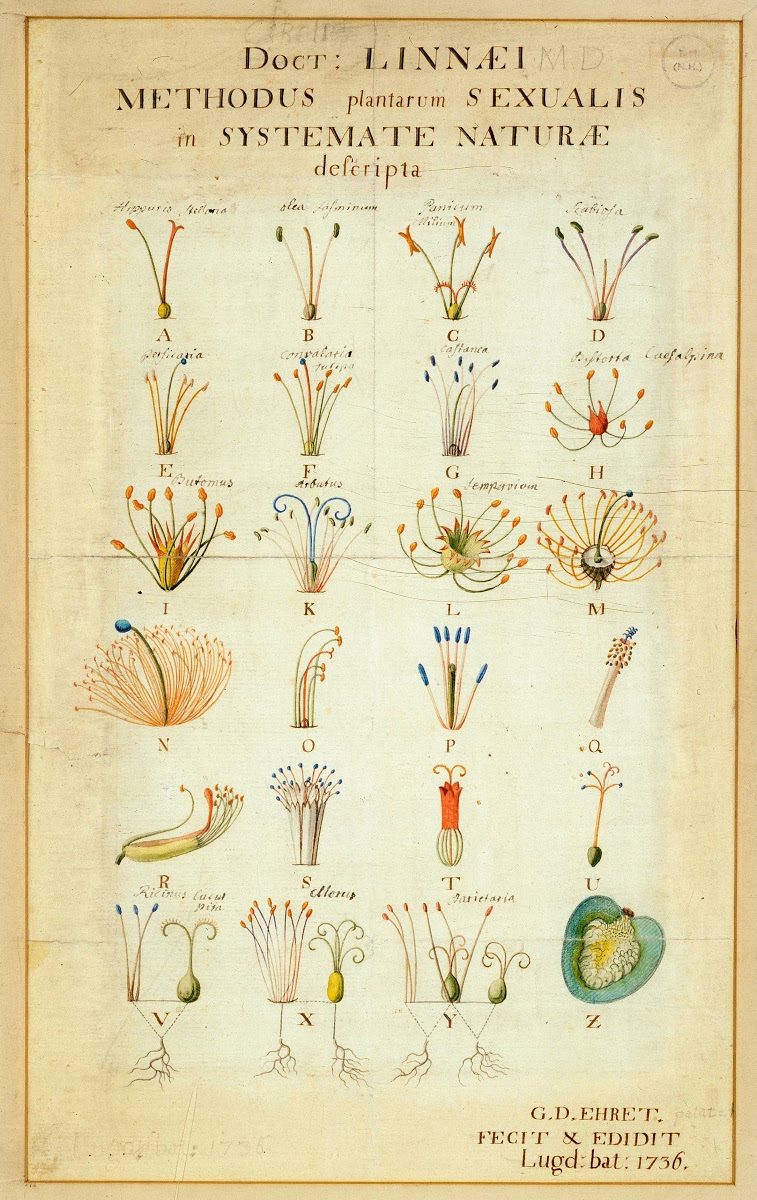 Doct: LINNÆI M D
METHODUS plantarum SEXUALIS
in SYSTEMATE NATURÆ
deſcripta
(N.H.)
olea Jaſminum
Panicum
Milium
Scabioſa
A B C D
Perſicaria
Convalaria
Tulipa
Castanea
Biſtorta Caeſalpina
E F G H
Butomus
Arbutus
Sempervivum
I K L M
N O P Q
R S T U
Ricinus
Morus
Parietaria
V X Y Z
G.D. EHRET.
FECIT & EDIDIT
Lugd: bat: 1736.